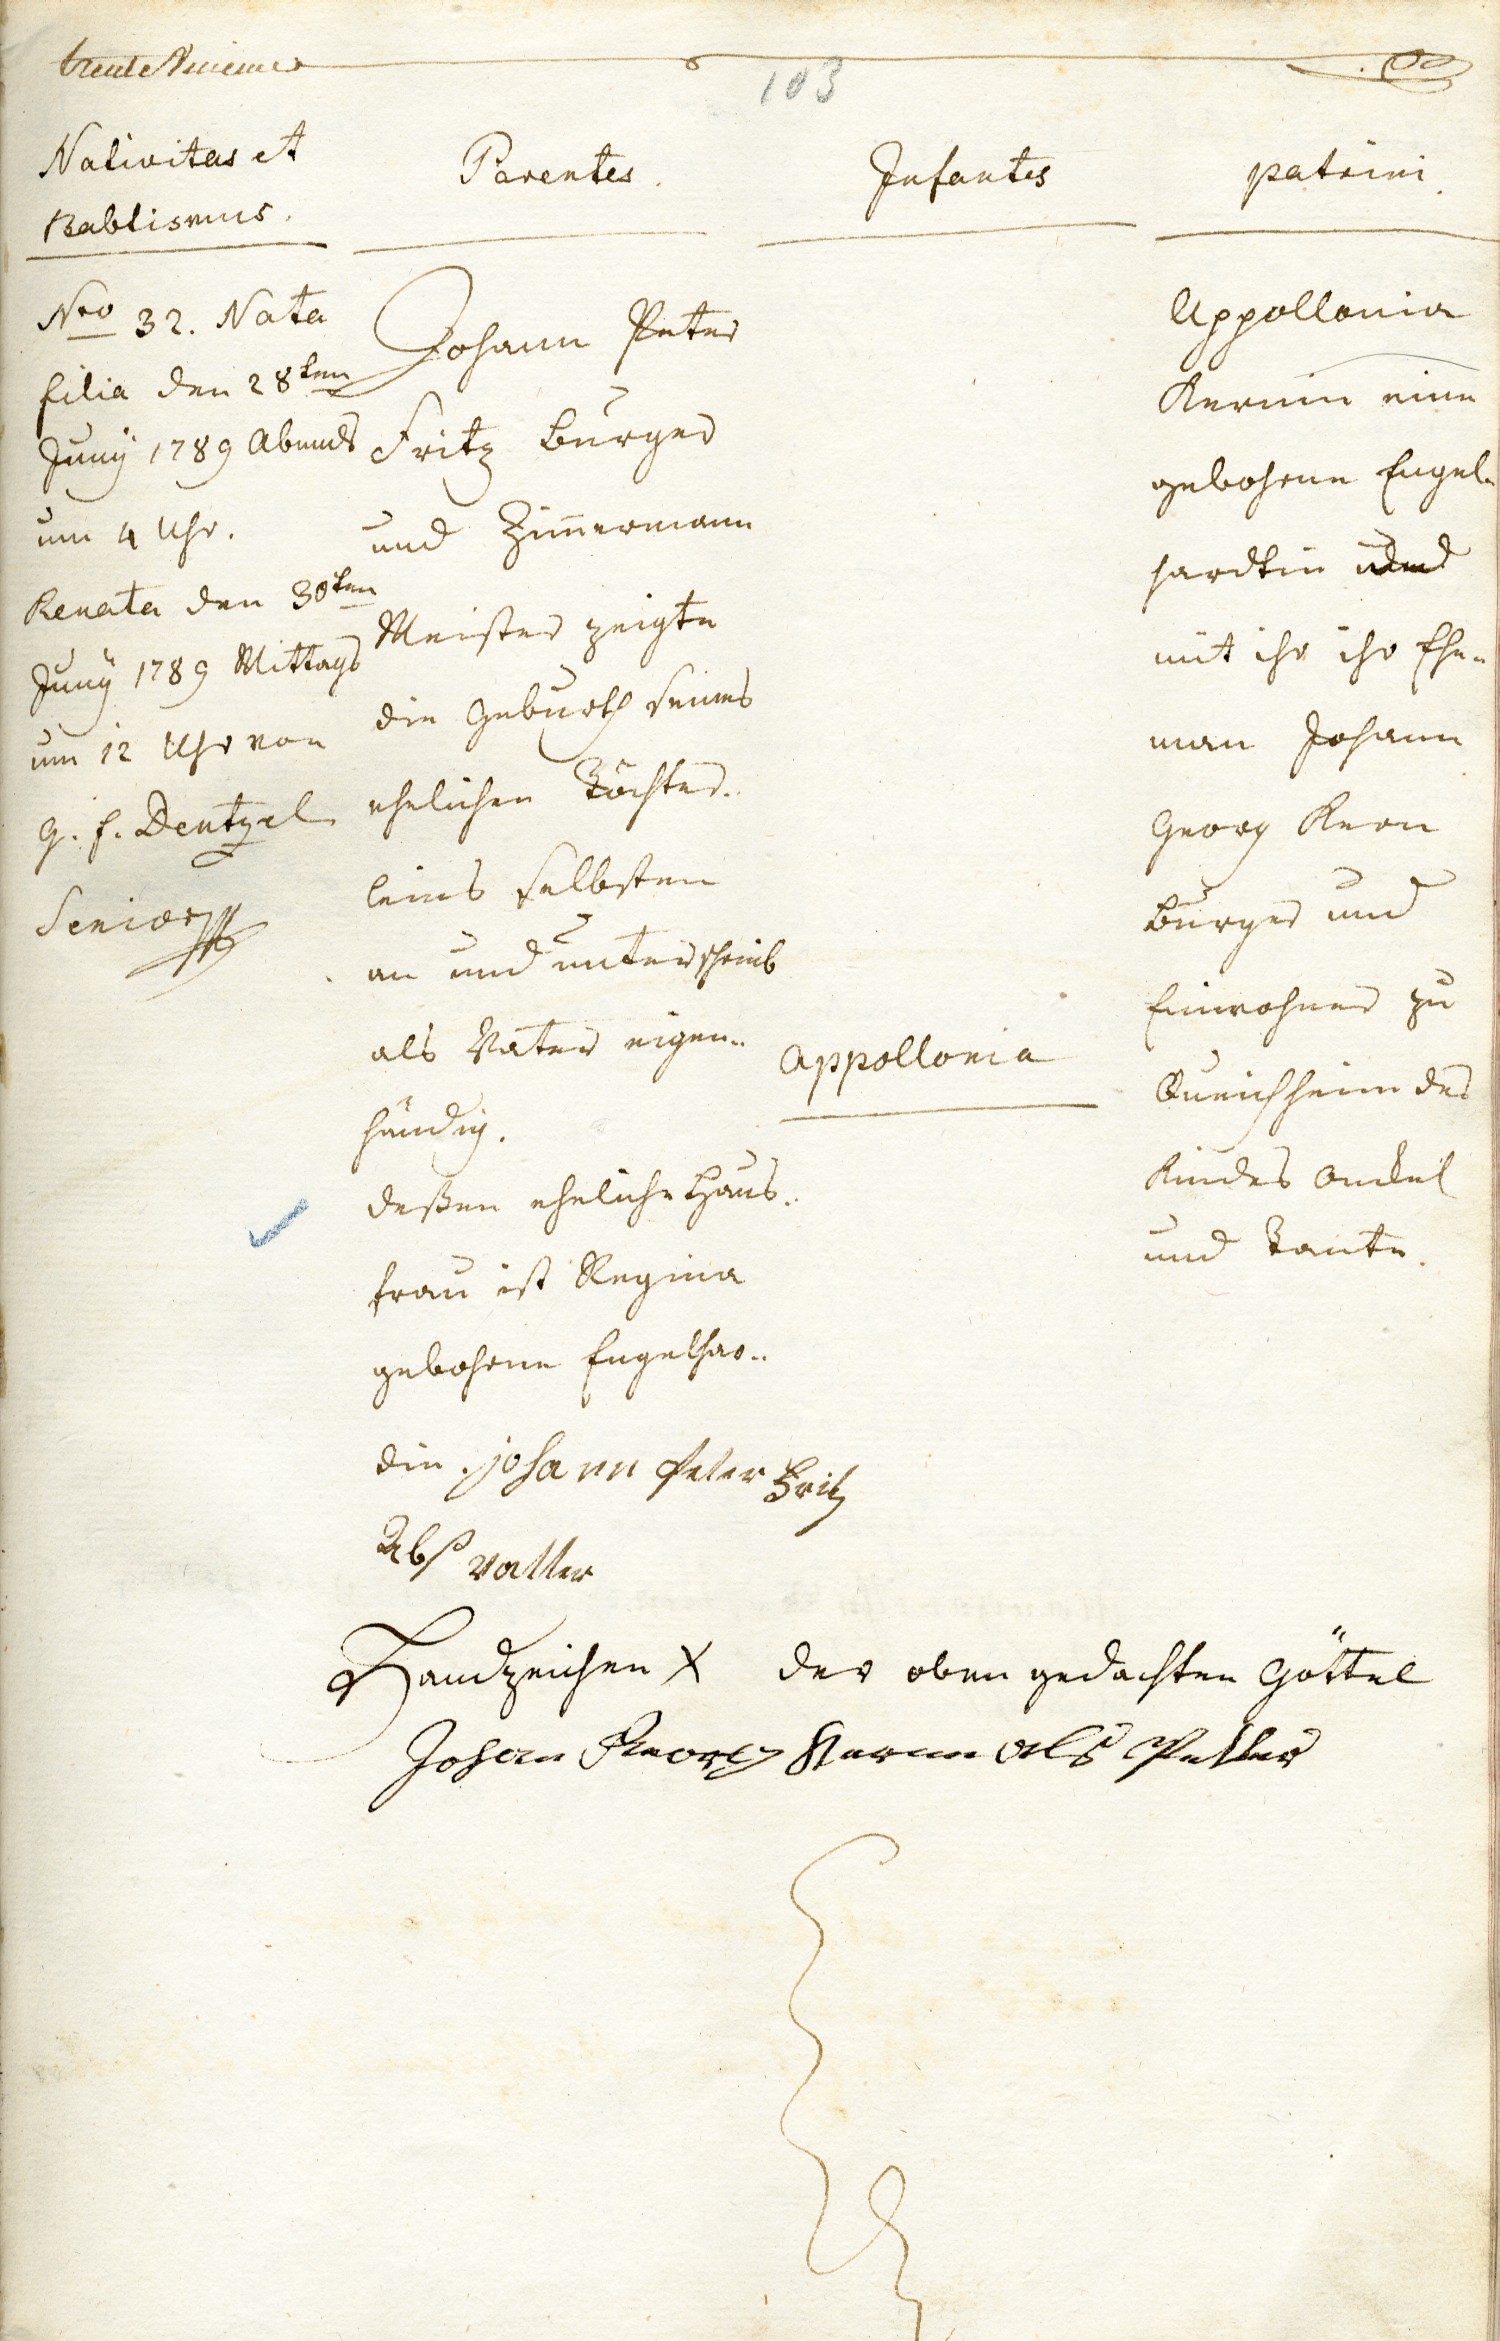 trente deuxieme
103
Nativitas et
Babtismus.
Parentes.
Infantes
patrini.
Nro 32. Nata
filia den 28ten
Juny 1789 Abends
um 4 Uhr.
Renata den 30ten
Juny 1789 Mittags
um 12 Uhr von
G. F. Dentzel
Senior
Johann Peter
Fritz Burger
und Zimmermann
Meister zeigte
die Geburth seines
ehelichen Töchter..
leins selbsten
an und unterschrieb
als Vater eigen..
händig.
deßen eheliche Haus..
frau ist Regina
gebohrne Engelhar..
din. Johann Peter Fritz
Alß Vatter
Appollonia
Appollonia
Kernin eine
gebohrne Engel..
hardtin und
mit ihr ihr Ehe..
man Johann
Georg Kern
Burger und
Einwohner zu
Queichheim des
Kindes Onckel
und Tante.
Handzeichen X der oben gedachten Göttel
Johan Georg Kernn als Petter